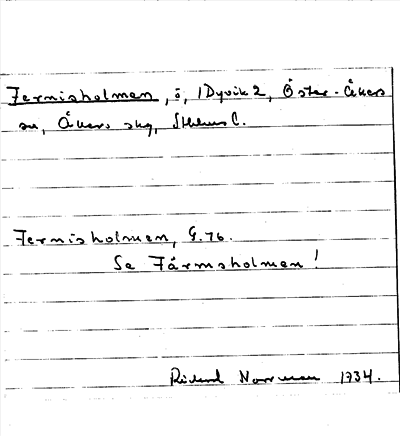 Fermisholmen, ö, i Dyvik 2, Öster-Åkers
sn, Åkers skg, Sthlms l.
Fermisholmen, G.76.
Se Färmsholmen!
Rickard Norrman 1934.